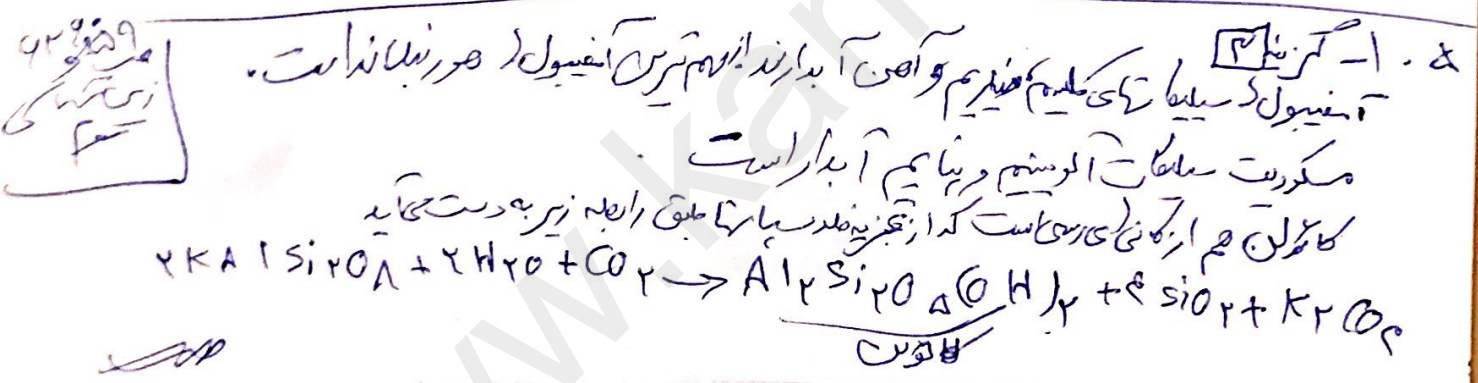 ۵۰۱- گزینه ۳
آمفیبول‌ها سیلیکات‌های کلسیم، منیزیم و آهن آبدارند از مهم‌ترین آمفیبول‌ها هورنبلانداست.
مسکوویت سیلیکات آلومینیم و پتاسیم آبدار است.
کائولن هم از کانی‌های رسی است که از تجزیه فلدسپارتها طبق رابطه زیر به دست می‌آید
۲KAlSi۳O۸ + ۲H۲O + CO۲ → Al۲Si۲O۵(OH)۲ + ۴SiO۲ + K۲CO۳
کائولن
زمین‌شناسی
سوم
www.kan